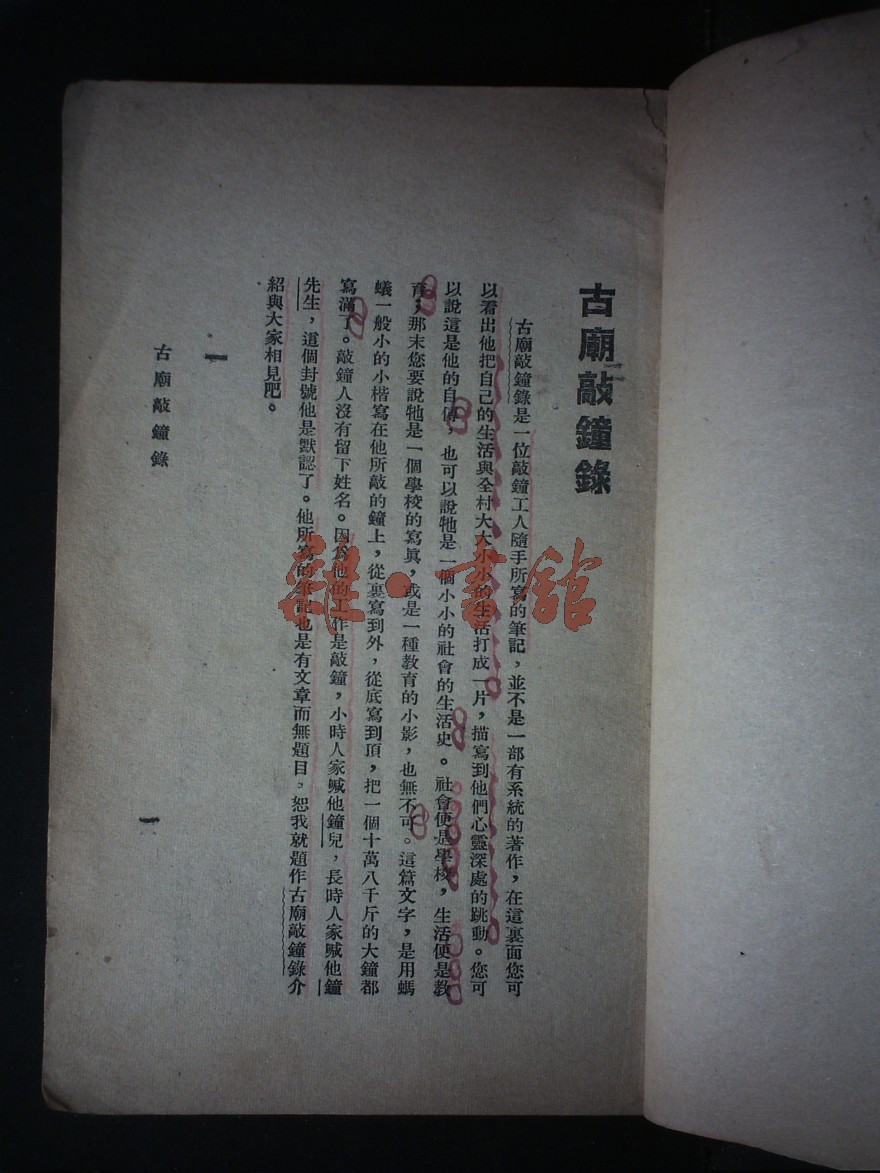 古廟敲鐘錄
古廟敲鐘錄是一位敲鐘工人隨手所寫的筆記，並不是一部有系統的著作，在這裏面您可
以看出他把自己的生活與全村大大小小的生活打成一片，描寫到他們心靈深處的跳動。您可
以說這是他的自傳，也可以說牠是一個小小的社會的生活史。社會便是學校，生活便是教
育；那末您要說牠是一個學校的寫眞，或是一種教育的小影，也無不可。這篇文字，是用螞
蟻一般小的小楷寫在他所敲的鐘上，從裏寫到外，從底寫到頂，把一個十萬八千斤的大鐘都
寫滿了。敲鐘人沒有留下姓名。因爲他的工作是敲鐘，小時人家喊他鐘兒，長時人家喊他鐘
先生，這個封號他是默認了。他所寫的筆記也是有文章而無題目，恕我就題作古廟敲鐘錄介
紹與大家相見肥。
一
古廟敲鐘錄
一
雜·書館